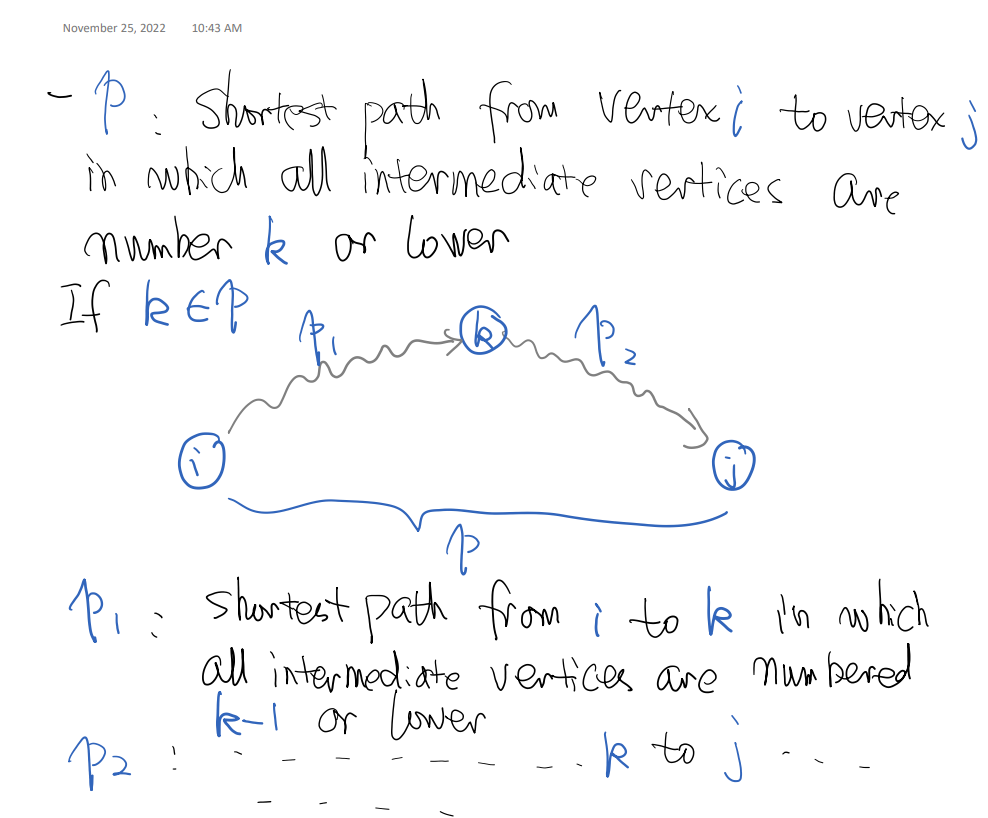 November 25, 2022 10:43 AM
- p : shortest path from vertex i to vertex j
in which all intermediate vertices are
number k or lower
If k ∈ p
p1 k p2
i j
p
p1 : shortest path from i to k in which
all intermediate vertices are numbered
k-1 or lower
p2 : - - - - - - - - k to j - - -
- - - -